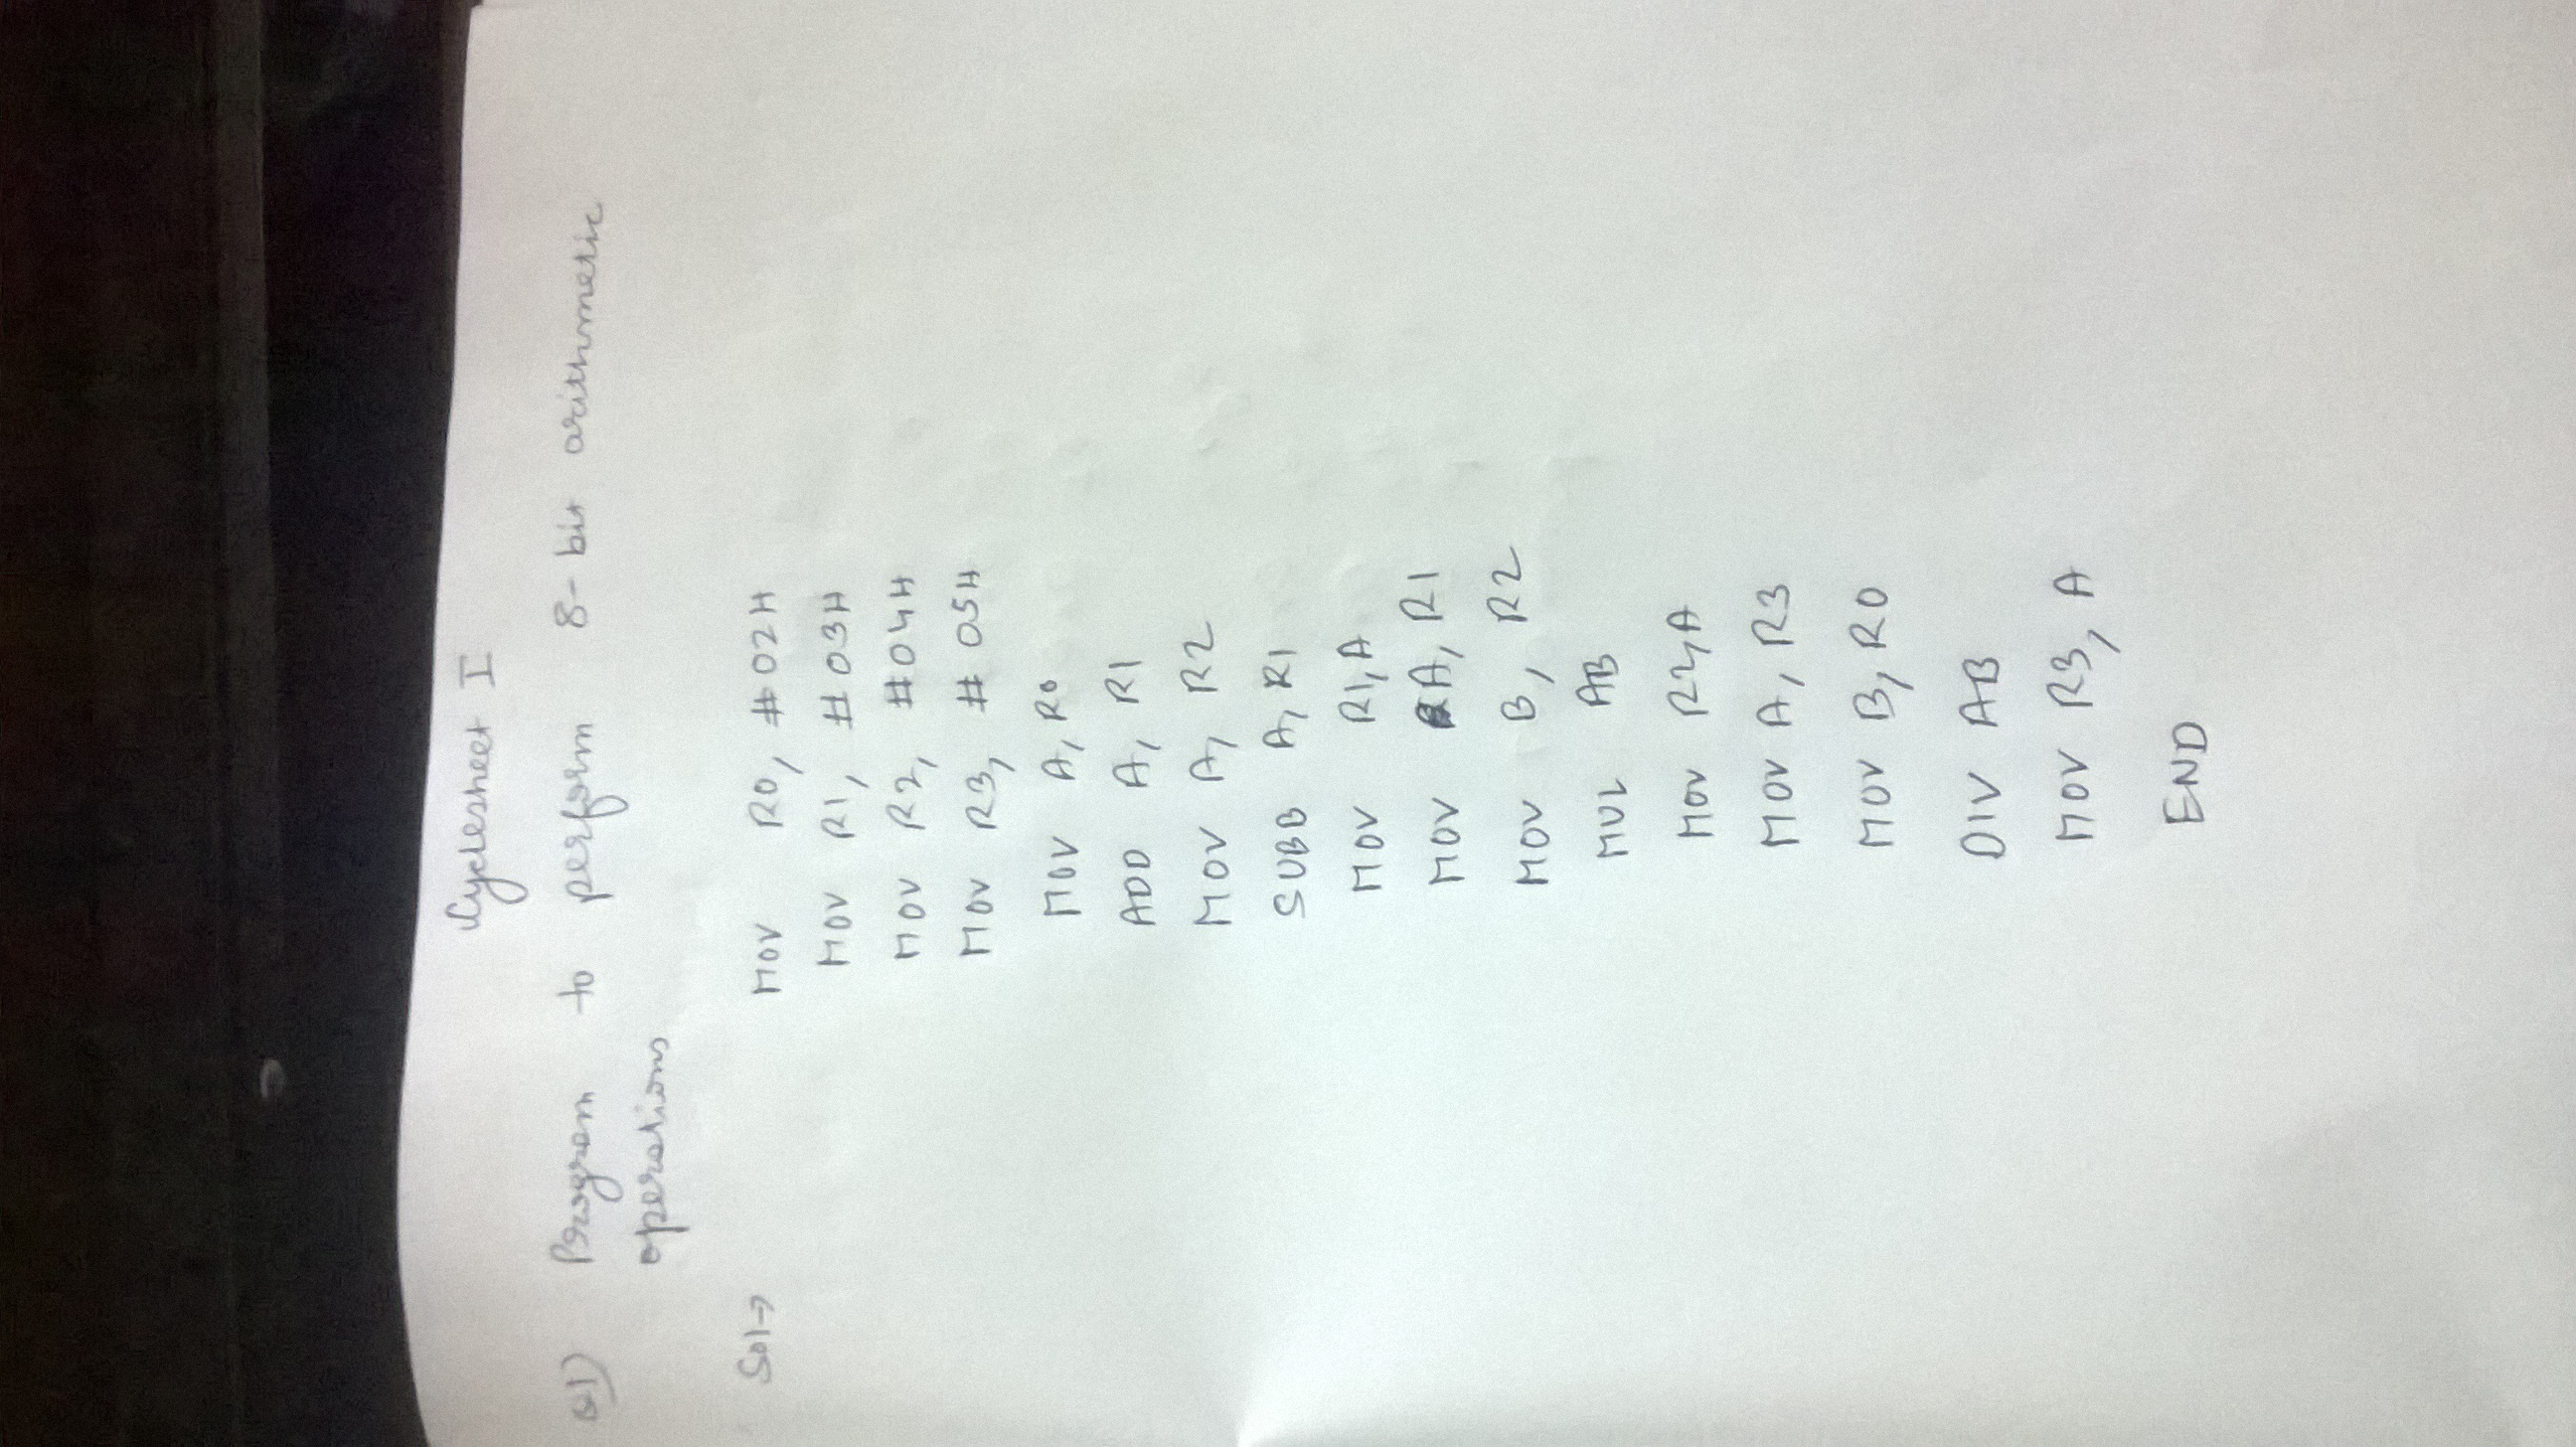 Cyclesheet I
Q1) Program to perform 8-bit arithmetic
operations
Sol→ MOV R0, #02H
MOV R1, #03H
MOV R2, #04H
MOV R3, #05H
MOV A, R0
ADD A, R1
MOV A, R2
SUBB A, R1
MOV R1, A
MOV A, R1
MOV B, R2
MUL AB
MOV R2, A
MOV A, R3
MOV B, R0
DIV AB
MOV R3, A
END